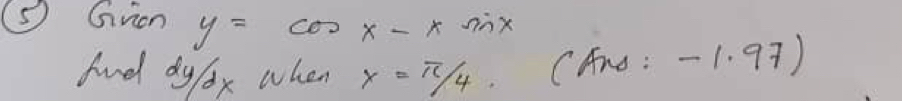 (5) Given y = cos x - x sin x
find dy/dx when x = π/4. (Ans: -1.97)